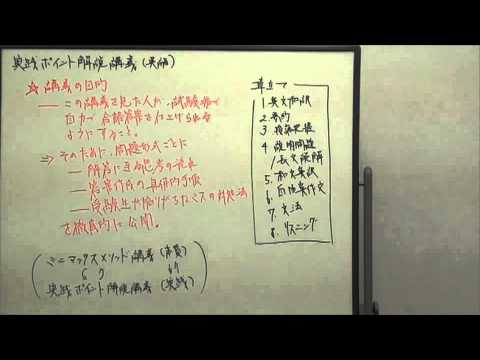 実戦ポイント解説講義(英語)
☆ 講義の目的
── この講義を見た人が、試験場で
自力で合格答案を仕上げられる
ようにすること。
⇒ そのために、問題形式ごとに
─ 解答に至る思考の流れ
─ 答案作成の具体的手順
─ 受験生が陥りがちなミスの対処法
を徹底的に公開。
ミニマックスメソッド講義(本質)
実戦ポイント解説講義(実戦)
1. 英文和訳
2. 要約
3.
4. 説明問題
/長文読解
5. 和文英訳
6. 自由英作文
7. 文法
8. リスニング